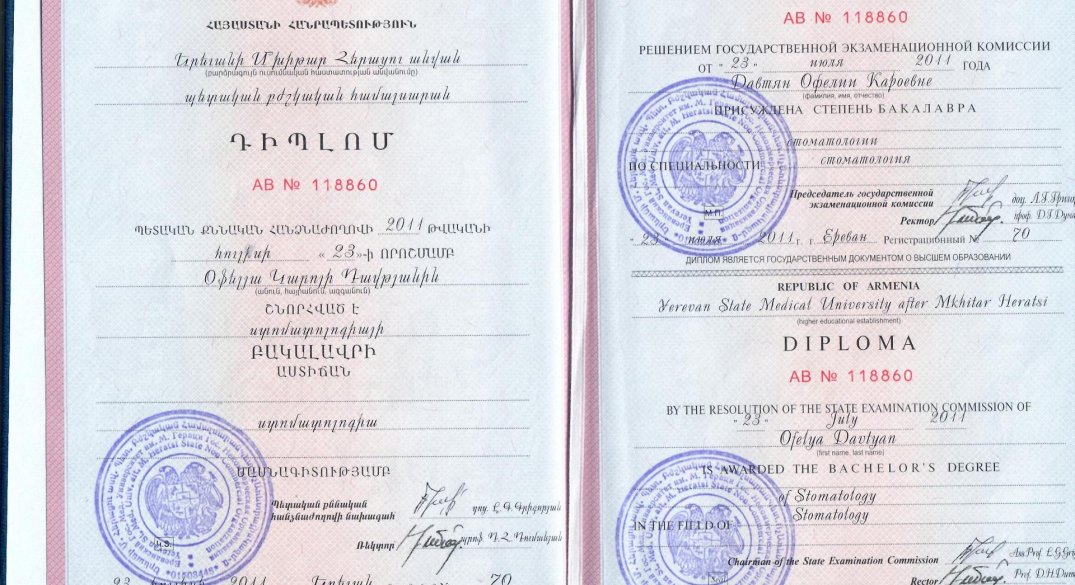 ՀԱՅԱՍՏԱՆԻ ՀԱՆՐԱՊԵՏՈՒԹՅՈՒՆ
Երևանի Մխիթար Հերացու անվան
(բարձրագույն ուսումնական հաստատության անվանումը)
պետական բժշկական համալսարան
ԴԻՊԼՈՄ
AB № 118860
ՊԵՏԱԿԱՆ ՔՆՆԱԿԱՆ ՀԱՆՁՆԱԺՈՂՈՎԻ 2011 ԹՎԱԿԱՆԻ
հուլիսի « 23 »-ի ՈՐՈՇՄԱՄԲ
Օֆելյա Կարոյի Դավթյանին
(անուն, հայրանուն, ազգանուն)
ՇՆՈՐՀՎԱԾ Է
ստոմատոլոգիայի
ԲԱԿԱԼԱՎՐԻ
ԱՍՏԻՃԱՆ
ստոմատոլոգիա
ՄԱՍՆԱԳԻՏՈՒԹՅԱՄԲ
Պետական քննական
հանձնաժողովի նախագահ
դոց. Լ.Գ.Գրիգորյան
Ռեկտոր
պրոֆ. Դ.Հ.Դումանյան
23 հուլիսի 2011 Երևան 70
AB № 118860
РЕШЕНИЕМ ГОСУДАРСТВЕННОЙ ЭКЗАМЕНАЦИОННОЙ КОМИССИИ
ОТ " 23 " июля 2011 ГОДА
Давтян Офелии Кароевне
(фамилия, имя, отчество)
ПРИСУЖДЕНА СТЕПЕНЬ БАКАЛАВРА
стоматологии
ПО СПЕЦИАЛЬНОСТИ
стоматология
Председатель государственной
экзаменационной комиссии
доц. Л.Г.
Ректор
проф. Д.Г.
М.П.
" 23 " июля 2011 г. г. Ереван Регистрационный № 70
ДИПЛОМ ЯВЛЯЕТСЯ ГОСУДАРСТВЕННЫМ ДОКУМЕНТОМ О ВЫСШЕМ ОБРАЗОВАНИИ
REPUBLIC OF ARMENIA
Yerevan State Medical University after Mkhitar Heratsi
(higher educational establishment)
DIPLOMA
AB № 118860
BY THE RESOLUTION OF THE STATE EXAMINATION COMMISSION OF
" 23 " July 2011
Ofelya Davtyan
(first name, last name)
IS AWARDED THE BACHELOR'S DEGREE
of Stomatology
IN THE FIELD OF
Stomatology
Chairman of the State Examination Commission
Ass.Prof. L.G.
Rector
Prof. D.H.